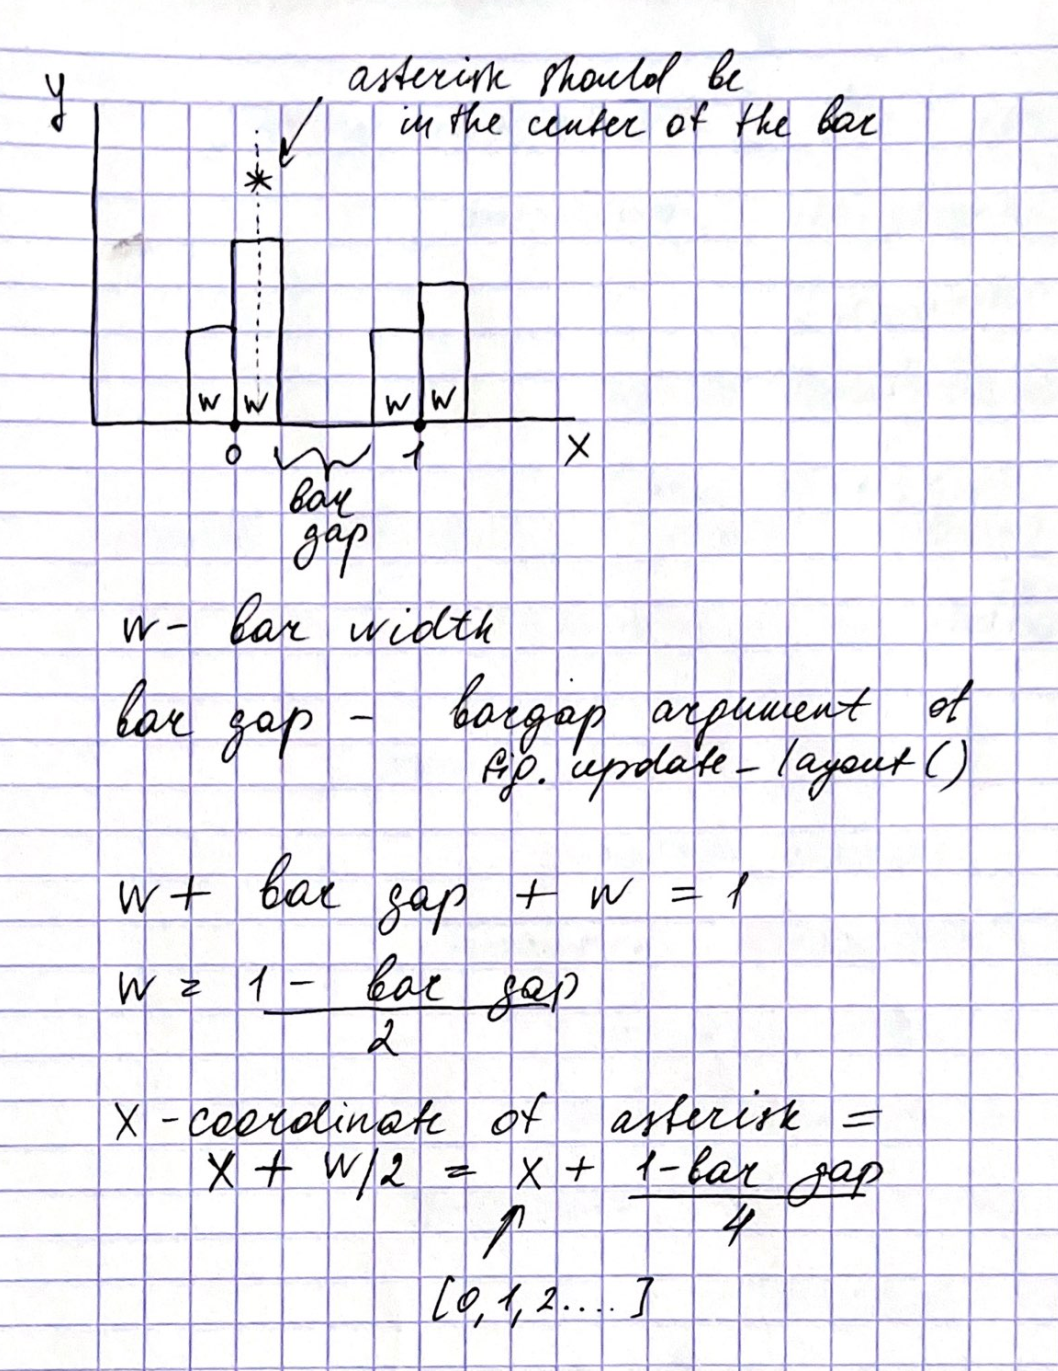 y
asterisk should be
in the center of the bar
*
w w w w
0 1 X
bar
gap
w - bar width
bar gap - bargap argument of
fig. update_layout()
w + bar gap + w = 1
w = 1 - bar gap
2
X-coordinate of asterisk =
X + w/2 = X + 1-bar gap
4
[0,1,2....]